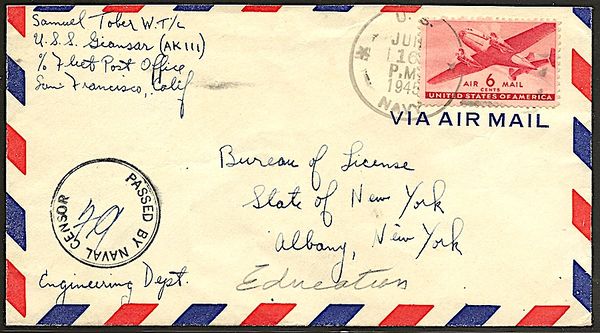 Samuel Tober W.T/c
U.S.S. Giansar (AK111)
c/o Fleet Post Office
San Francisco, Calif
U. S.
JUN
16
P.M.
1945
NAVY
AIR 6 MAIL
CENTS
UNITED STATES OF AMERICA
VIA AIR MAIL
Bureau of License
State of New York
Albany, New York
Education
PASSED BY NAVAL CENSOR
Engineering Dept.